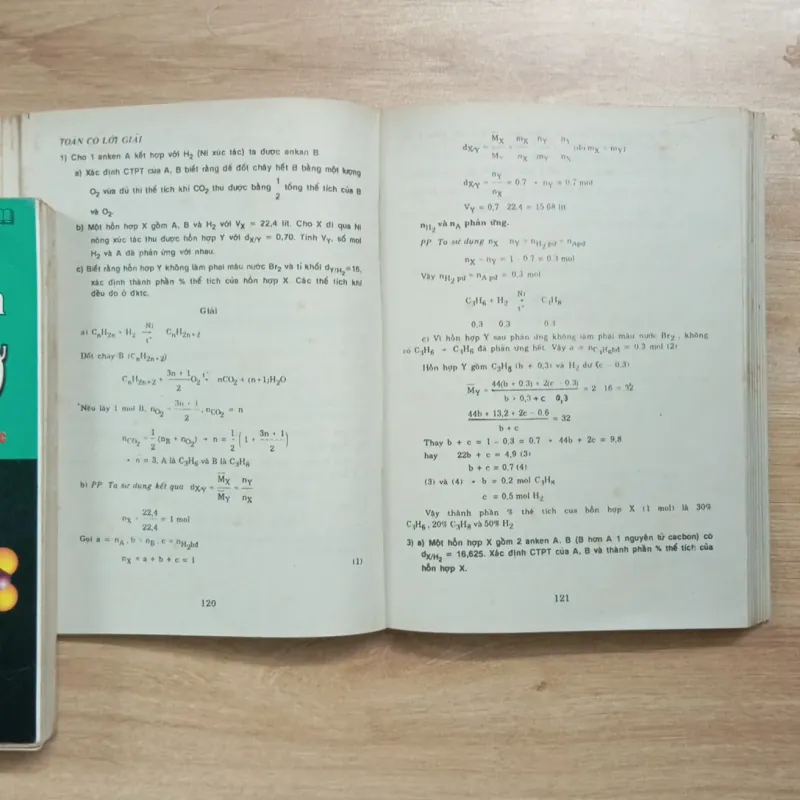 TOÁN CÓ LỜI GIẢI
1) Cho 1 anken A kết hợp với H2 (Ni xúc tác) ta được ankan B
a) Xác định CTPT của A, B biết rằng để đốt cháy hết B bằng một lượng
O2 vừa đủ thì thể tích khí CO2 thu được bằng 1/2 tổng thể tích của B
và O2.
b) Một hỗn hợp X gồm A, B và H2 với VX = 22,4 lít. Cho X đi qua Ni
nóng xúc tác thu được hỗn hợp Y với dX/Y = 0,70. Tính VY, số mol
H2 và A đã phản ứng với nhau.
c) Biết rằng hỗn hợp Y không làm phai màu nước Br2 và tỉ khối dY/H2=16,
xác định thành phần % thể tích của hỗn hợp X. Các thể tích khí
đều đo ở đktc.
Giải
a) CnH2n + H2 Ni t° CnH2n+2
Đốt cháy B (CnH2n+2)
CnH2n+2 + 3n + 1/2 O2 t° nCO2 + (n+1)H2O
Nếu lấy 1 mol B, nO2 = 3n + 1/2, nCO2 = n
nCO2 = 1/2 (nB + nO2) → n = 1/2 (1 + 3n + 1/2)
→ n = 3, A là C3H6 và B là C3H8
b) PP Ta sử dụng kết quả dX/Y = MX/MY = nY/nX
nX = 22,4/22,4 = 1 mol
Gọi a = nA, b = nB, c = nH2bđ
nX = a + b + c = 1 (1)
120
dX/Y = MX/MY = mX/nX nY/mY = nY/nX (do mX = mY)
dX/Y = nY/nX = 0.7 → nY = 0.7 mol
VY = 0,7 22.4 = 15 68 lít
nH2 và nA phản ứng.
PP Ta sử dụng nX - nY = nH2 pư = nApư
nX - nY = 1 - 0.7 = 0.3 mol
Vậy nH2 pư = nA pư = 0.3 mol
C3H6 + H2 Ni t° C3H8
0,3 0.3 0.3
c) Vì hỗn hợp Y sau phản ứng không làm phai màu nước Br2, không
có C3H6 → C3H6 đã phản ứng hết. Vậy a = nC3H6bđ = 0.3 mol (2)
Hỗn hợp Y gồm C3H8 (b + 0,3) và H2 dư (c - 0,3)
MY = 44(b + 0.3) + 2(c - 0.3)/b + 0,3 + c 0,3 = 2 16 = 32
44b + 13,2 + 2c - 0.6/b + c = 32
Thay b + c = 1 - 0,3 = 0.7 → 44b + 2c = 9,8
hay 22b + c = 4,9 (3)
b + c = 0,7 (4)
(3) và (4) → b = 0,2 mol C3H8
c = 0,5 mol H2
Vậy thành phần % thể tích của hỗn hợp X (1 mol) là 30%
C3H6, 20% C3H8 và 50% H2
3) a) Một hỗn hợp X gồm 2 anken A, B (B hơn A 1 nguyên tử cacbon) có
dX/H2 = 16,625. Xác định CTPT của A, B và thành phần % thể tích của
hỗn hợp X.
121